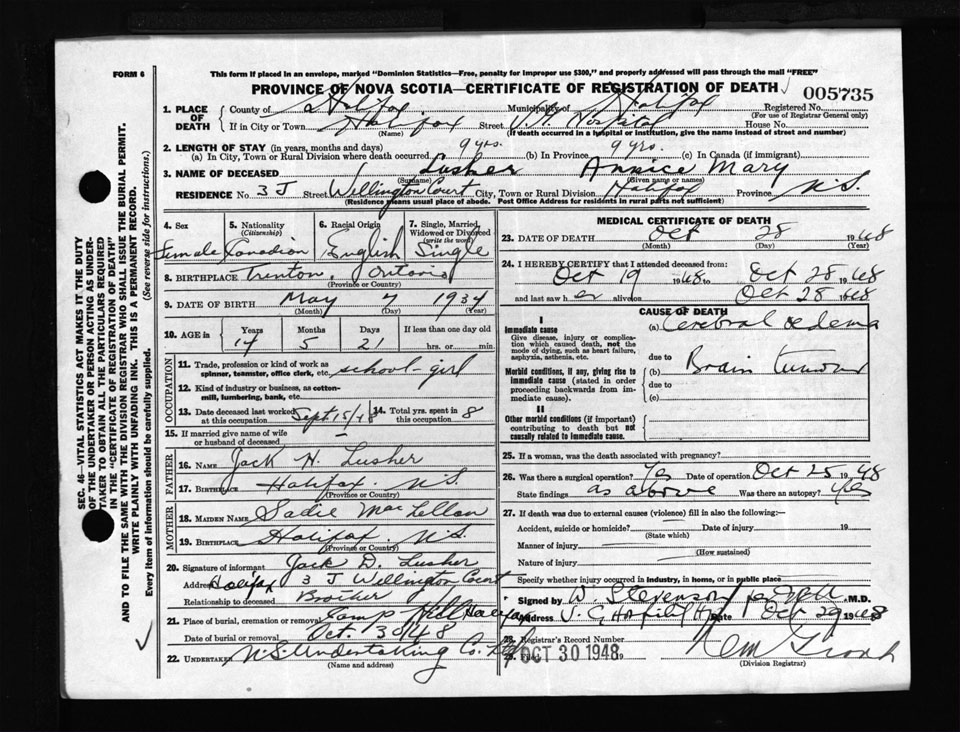 FORM 6
This form if placed in an envelope, marked "Dominion Statistics—Free, penalty for improper use $300," and properly addressed will pass through the mail "FREE"
PROVINCE OF NOVA SCOTIA—CERTIFICATE OF REGISTRATION OF DEATH
005735
1. PLACE OF DEATH
County of Halifax Municipality of Halifax Registered No.
(For use of Registrar General only)
If in City or Town Halifax Street V.G. Hospital House No.
(Name) (If death occurred in a hospital or institution, give the name instead of street and number)
2. LENGTH OF STAY (in years, months and days)
(a) In City, Town or Rural Division where death occurred 9 yrs. (b) In Province 9 yrs. (c) In Canada (if immigrant)
3. NAME OF DECEASED Lusher Annie Mary
(Surname) (Given name or name)
RESIDENCE No. 3 J Street Wellington Court City, Town or Rural Division Halifax Province N.S.
(Residence means usual place of abode. Post Office Address for residents in rural parts not sufficient)
4. Sex
Female
5. Nationality
(Citizenship)
Canadian
6. Racial Origin
English
7. Single, Married, Widowed or Divorced
(write the word)
Single
8. BIRTHPLACE Trenton, Ontario
(Province or Country)
9. DATE OF BIRTH May 7 1934
(Month) (Day) (Year)
10. AGE in
Years Months Days If less than one day old
14 5 21 hrs. or min.
OCCUPATION
11. Trade, profession or kind of work as
spinner, teamster, office clerk, etc. school-girl
12. Kind of industry or business, as cotton-
mill, lumbering, bank, etc.
13. Date deceased last worked at this occupation Sept 15/48
14. Total yrs. spent in this occupation 8
15. If married give name of wife
or husband of deceased —
FATHER
16. NAME Jack H. Lusher
17. BIRTHPLACE Halifax N.S.
(Province or Country)
MOTHER
18. MAIDEN NAME Sadie MacLellan
19. BIRTHPLACE Halifax N.S.
(Province or Country)
20. Signature of informant Jack D. Lusher
Address Halifax 3 J Wellington Court
Relationship to deceased Brother
21. Place of burial, cremation or removal Camp Hill Halifax
Date of burial or removal Oct. 30 48
22. UNDERTAKER N.S. Undertaking Co. Ltd
(Name and address)
MEDICAL CERTIFICATE OF DEATH
23. DATE OF DEATH Oct 28 1948
(Month) (Day) (Year)
24. I HEREBY CERTIFY that I attended deceased from:
Oct 19 1948 Oct 28 1948
and last saw her alive on Oct 28 1948
CAUSE OF DEATH
I
Immediate cause
Give disease, injury or complication which caused death, not the mode of dying, such as heart failure, asphyxia, asthenia, etc.
(a) Cerebral oedema
due to
Morbid conditions, if any, giving rise to immediate cause (stated in order proceeding backwards from immediate cause).
(b) Brain tumour
due to
(c)
II
Other morbid conditions (if important) contributing to death but not causally related to immediate cause.
25. If a woman, was the death associated with pregnancy?
26. Was there a surgical operation? Yes Date of operation Oct 25 1948
State findings as above Was there an autopsy? Yes
27. If death was due to external causes (violence) fill in also the following:—
Accident, suicide or homicide? Date of injury 19
(State which)
Manner of injury
(How sustained)
Nature of injury
Specify whether injury occurred in industry, in home, or in public place
Signed by W. Stevenson M.D.
Address V. G. Hospital Hfx Date Oct 29 1948
28. Registrar's Record Number
29. OCT 30 1948 19
(Division Registrar)
SEC. 46—VITAL STATISTICS ACT MAKES IT THE DUTY
OF THE UNDERTAKER OR PERSON ACTING AS UNDER-
TAKER TO OBTAIN ALL THE PARTICULARS REQUIRED
IN THE "CERTIFICATE OF REGISTRATION OF DEATH"
AND TO FILE THE SAME WITH THE DIVISION REGISTRAR WHO SHALL ISSUE THE BURIAL PERMIT.
WRITE PLAINLY WITH UNFADING INK. THIS IS A PERMANENT RECORD.
Every item of information should be carefully supplied. (See reverse side for instructions.)